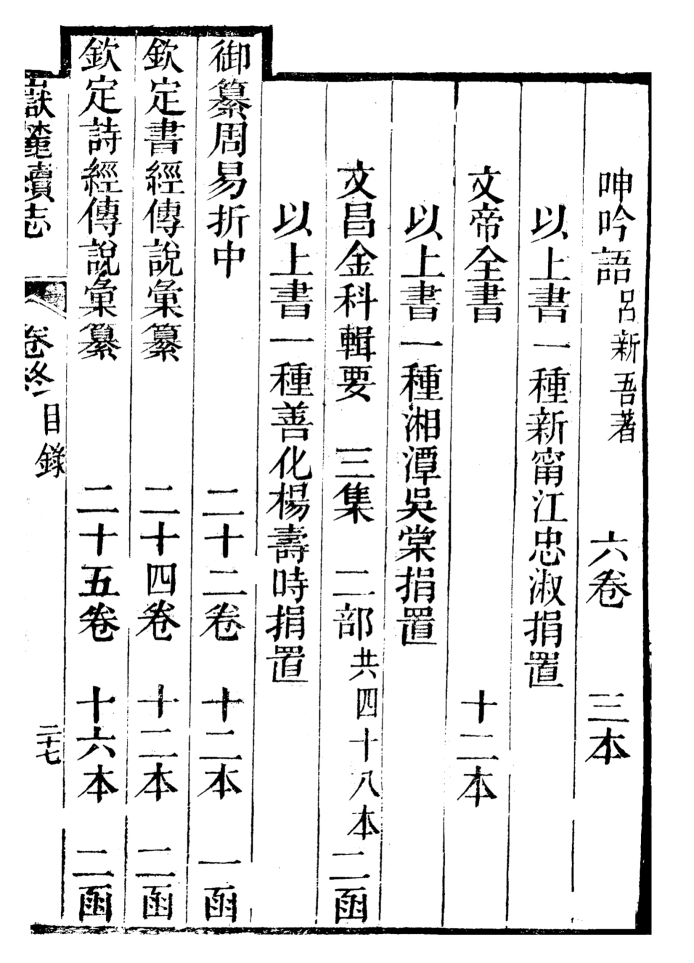 呻吟語 呂新吾著 六卷 三本
以上書一種新甯江忠淑捐置
文帝全書 十二本
以上書一種湘潭吳棠捐置
文昌金科輯要 三集 二部 共四十八本 二函
以上書一種善化楊壽時捐置
御纂周易折中 二十二卷 十二本 一函
欽定書經傳說彙纂 二十四卷 十二本 二函
欽定詩經傳說彙纂 二十五卷 十六本 二函
嶽麓續志 卷終 目錄 二十七